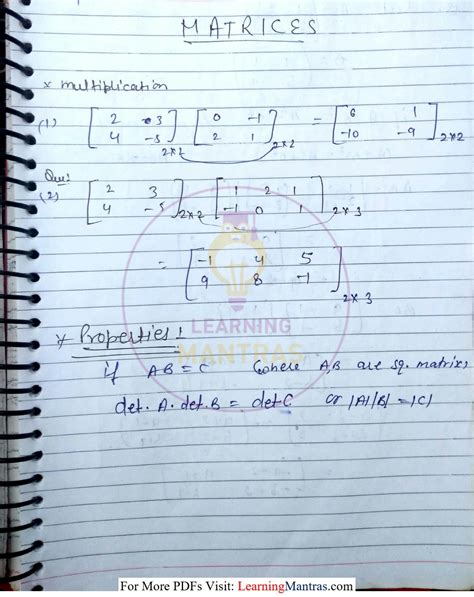 MATRICES
× multiplication
(1) [ 2 3 ; 4 -5 ]2×2 [ 0 -1 ; 2 1 ]2×2 = [ 6 1 ; -10 -9 ]2×2
Que:
(2) [ 2 3 ; 4 -5 ]2×2 [ 1 2 1 ; -1 0 1 ]2×3
= [ -1 4 5 ; 9 8 -1 ]2×3
LEARNING
× Properties :
MANTRAS
if AB = C where A,B are sq. matrix,
det. A. det. B = det C or |A||B| = |C|
For More PDFs Visit: LearningMantras.com